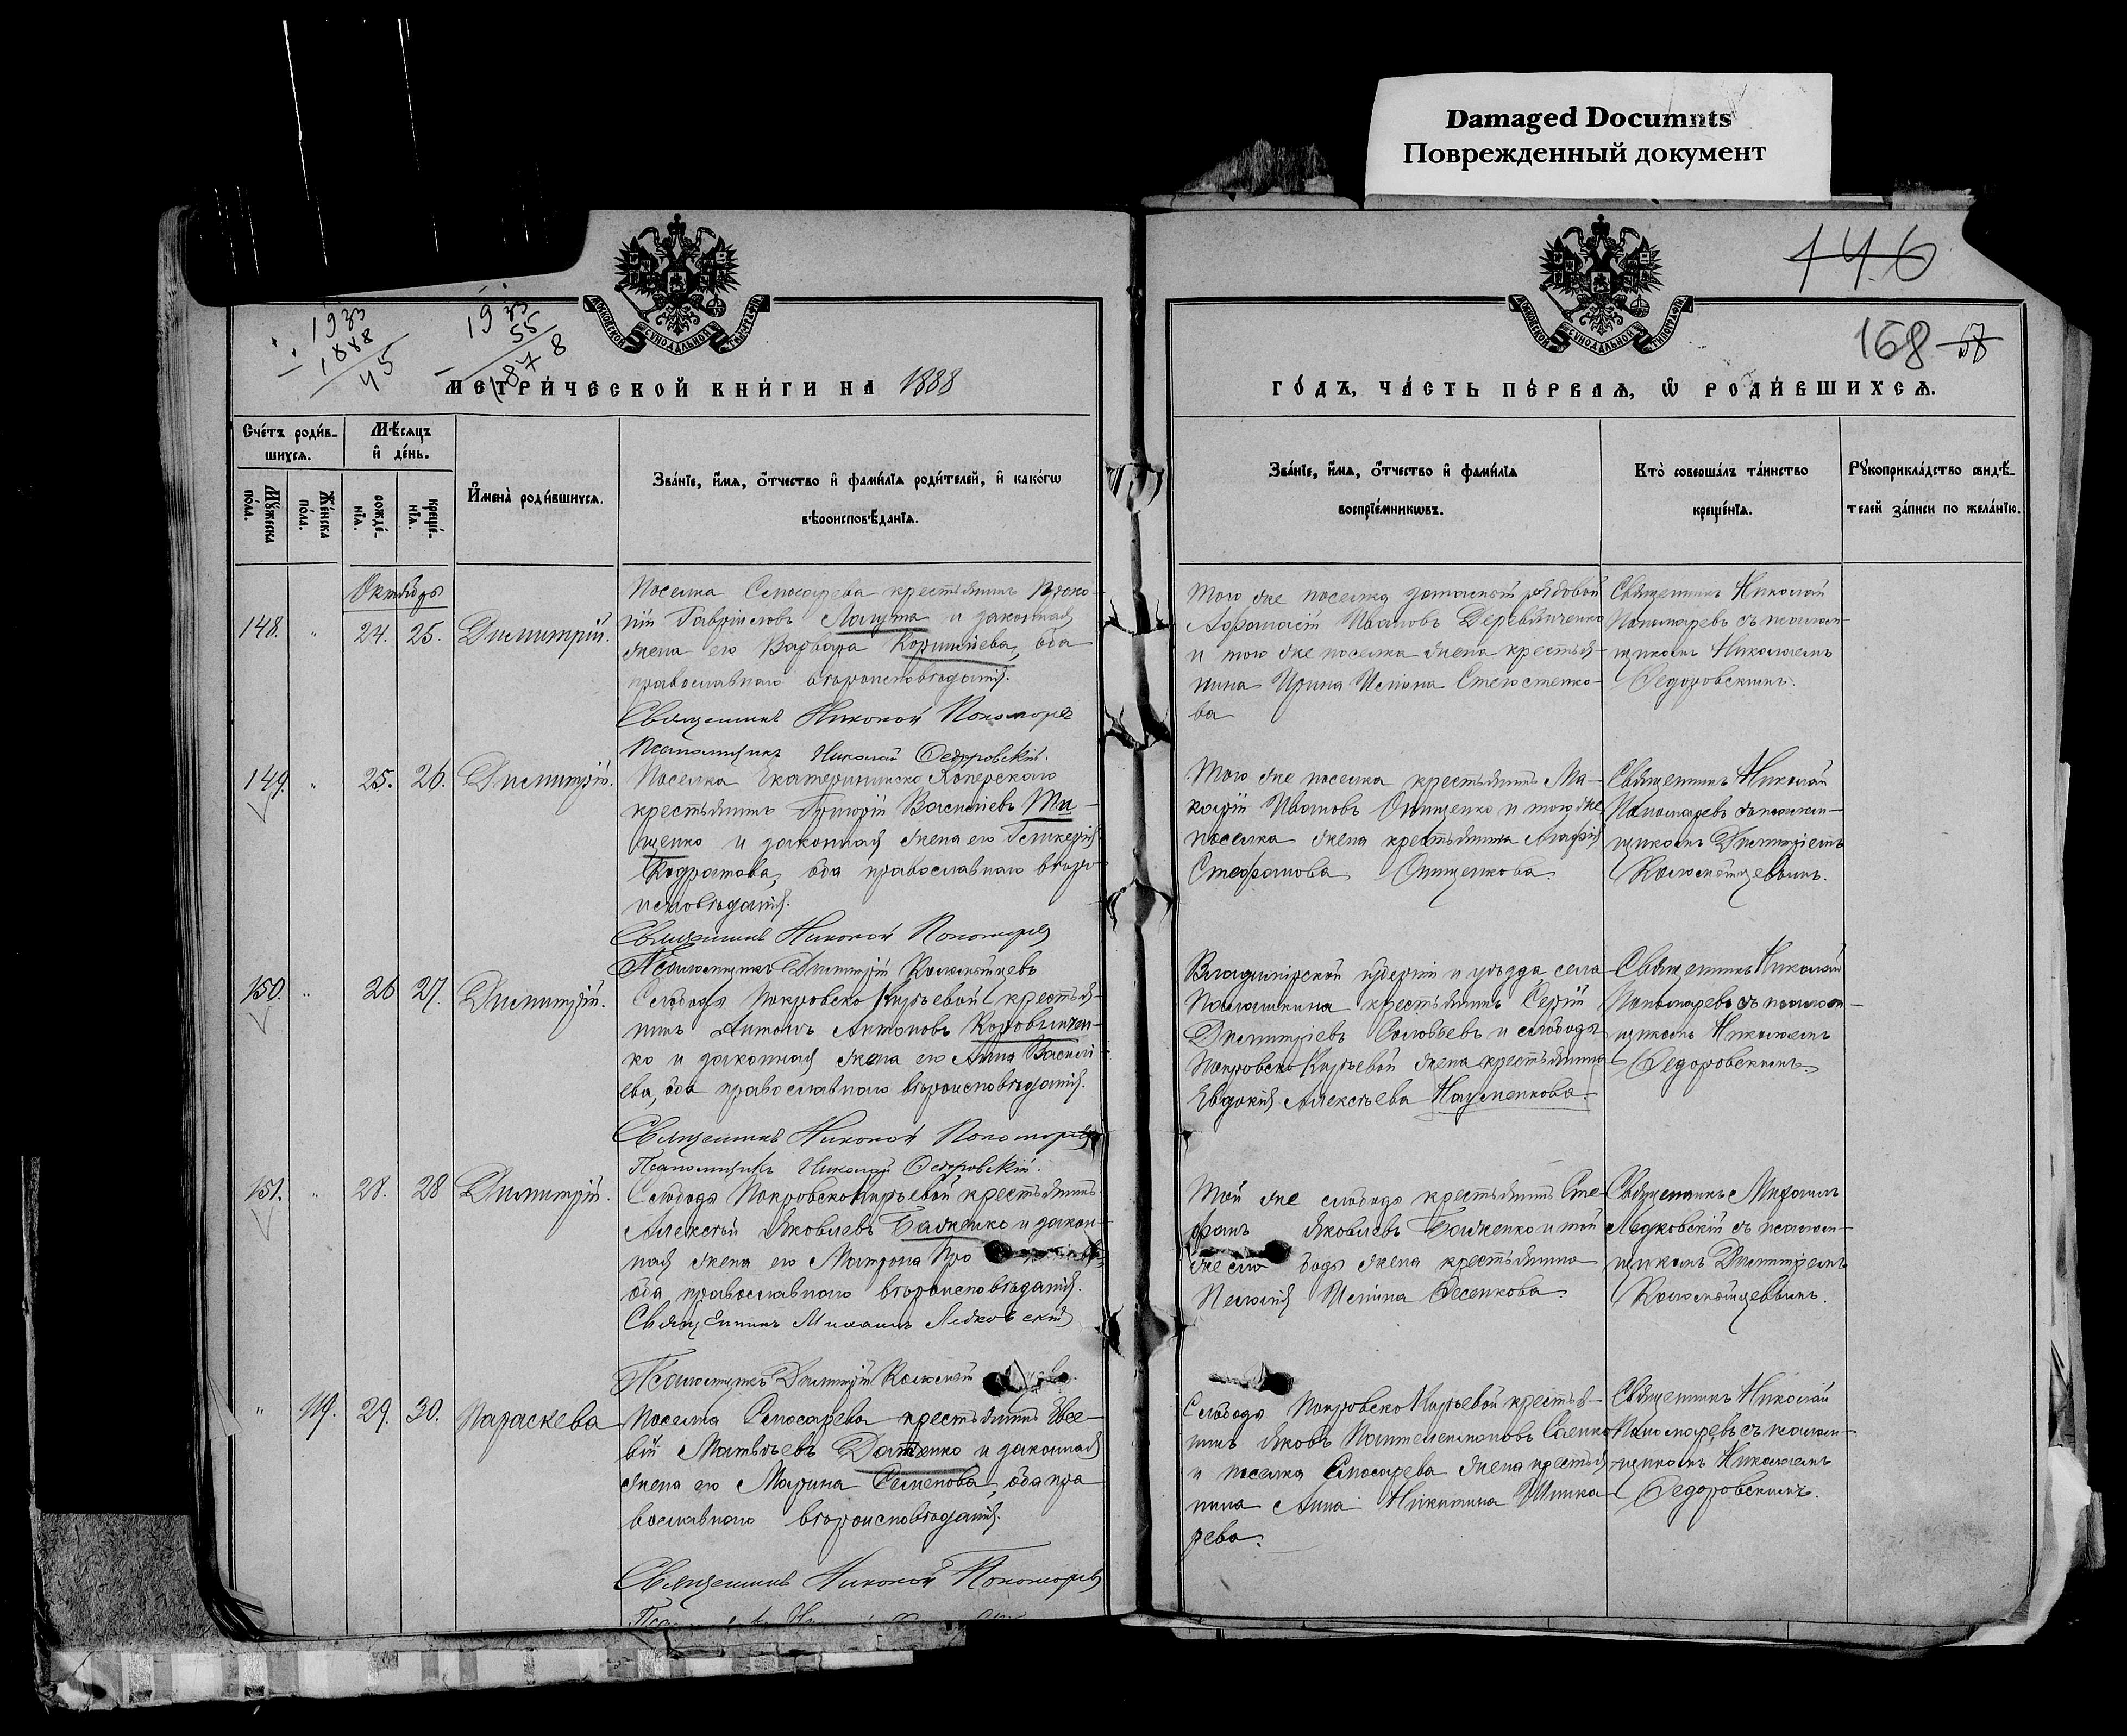 Damaged Documnts
Поврежденный документ
146
168
1933
1888
45
1933
55
1878
МОСКОВСКОЙ СѴНОДАЛЬНОЙ ТИПОГРАФІИ
МОСКОВСКОЙ СѴНОДАЛЬНОЙ ТИПОГРАФІИ
МЕТРИ́ЧЕСКОЙ КНИ́ГИ НА 1888
ГО́ДЪ, ЧА́СТЬ ПЕ́РВАѦ, Ѡ҆ РОДИ́ВШИХСѦ.
Сче́тъ роди́в-
шихсѧ.
Мѣ́сѧцъ
и҆ де́нь.
Мꙋ́жеска
по́ла.
Же́нска
по́ла.
рожде́-
нїѧ.
креще́-
нїѧ.
И҆мена̀ роди́вшихсѧ.
Зва́нїе, и҆́мѧ, ѻ҆́тчество и҆ фами́лїѧ роди́телей, и҆ како́гѡ
вѣроисповѣ́данїѧ.
Зва́нїе, и҆́мѧ, ѻ҆́тчество и҆ фами́лїѧ
воспрїе́мникѡвъ.
Кто̀ соверша́лъ та́инство
креще́нїѧ.
Рꙋкоприкла́дство свидѣ́-
телей за́писи по жела́нїю.
Октябрь
148. " 24. 25. Димитрій.
Поселка Слюсарева крестьянинъ Проко-
пій Гавріиловъ Лагута и законная
жена его Варвара Корнилiева, оба
православнаго вѣроисповѣданія.
Священникъ Николай Пономаревъ
Псаломщикъ Николай Ѳедоровскій.
Того же поселка запасный рядовой
Аѳанасій Ивановъ Деревянченко
и того же поселка жена крестья-
нина Ирина
ва
Священникъ Николай
Пономаревъ съ псалом-
щикомъ Николаемъ
Ѳедоровскимъ.
149. " 25. 26. Димитрій.
Поселка Екатериновско Хоперскаго
крестьянинъ Григорій Васильевъ Ти-
щенко и законная жена его Гликерія
Кодратова, оба православнаго вѣро-
исповѣданія.
Священникъ Николай Пономаревъ
Псаломщикъ Димитрій
Того же поселка крестьянинъ Ма-
карій Ивановъ Онищенко и того же
поселка жена крестьянина Агафія
Стефанова Онищенкова.
Священникъ Николай
Пономаревъ съ псалом-
щикомъ Димитріемъ
150. " 26 27. Димитрій.
Слободы Покровско Кирѣевой крестья-
нинъ Антонъ Антоновъ Коровянчен-
ко и законная жена его Анна Василі-
ева, оба православнаго вѣроисповѣданія.
Священникъ Николай Пономаревъ
Псаломщикъ Николай Ѳедоровскій.
Владимірской губерніи и уѣзда села
крестьянинъ Сергій
Димитріевъ Соловьевъ и слободы
Покровско Кирѣевой жена крестьянина
Евдокія Алексѣева Науменкова.
Священникъ Николай
Пономаревъ съ псалом-
щикомъ Николаемъ
Ѳедоровскимъ.
151. " 28. 28 Димитрій.
Слободы Покровско Кирѣевой крестьянинъ
Алексѣй Яковлевъ Бабченко и закон-
ная жена его Матрона Про
оба православнаго вѣроисповѣданія.
Священникъ Михаилъ Ледковскій
Псаломщикъ Димитрій
Той же слободы крестьянинъ Сте-
фанъ Яковлевъ Бабченко и той
же слободы жена крестьянина
Пелагія Ильина Фесенкова.
Священникъ Михаилъ
Ледковскій съ псалом-
щикомъ Димитріемъ
" 119. 29. 30. Параскева
Поселка Слюсарева крестьянинъ Евсе-
вій Матвѣевъ Доценко и законная
жена его Марина Семенова, оба пра
вославнаго вѣроисповѣданія.
Священникъ Николай Пономаревъ
Слободы Покровско Кирѣевой крестья-
нинъ Яковъ Пантелеимоновъ Саенко
и поселка Слюсарева жена крестья-
нина Анна Никитина Шинка
рева.
Священникъ Николай
Пономаревъ съ псалом-
щикомъ Николаемъ
Ѳедоровскимъ.